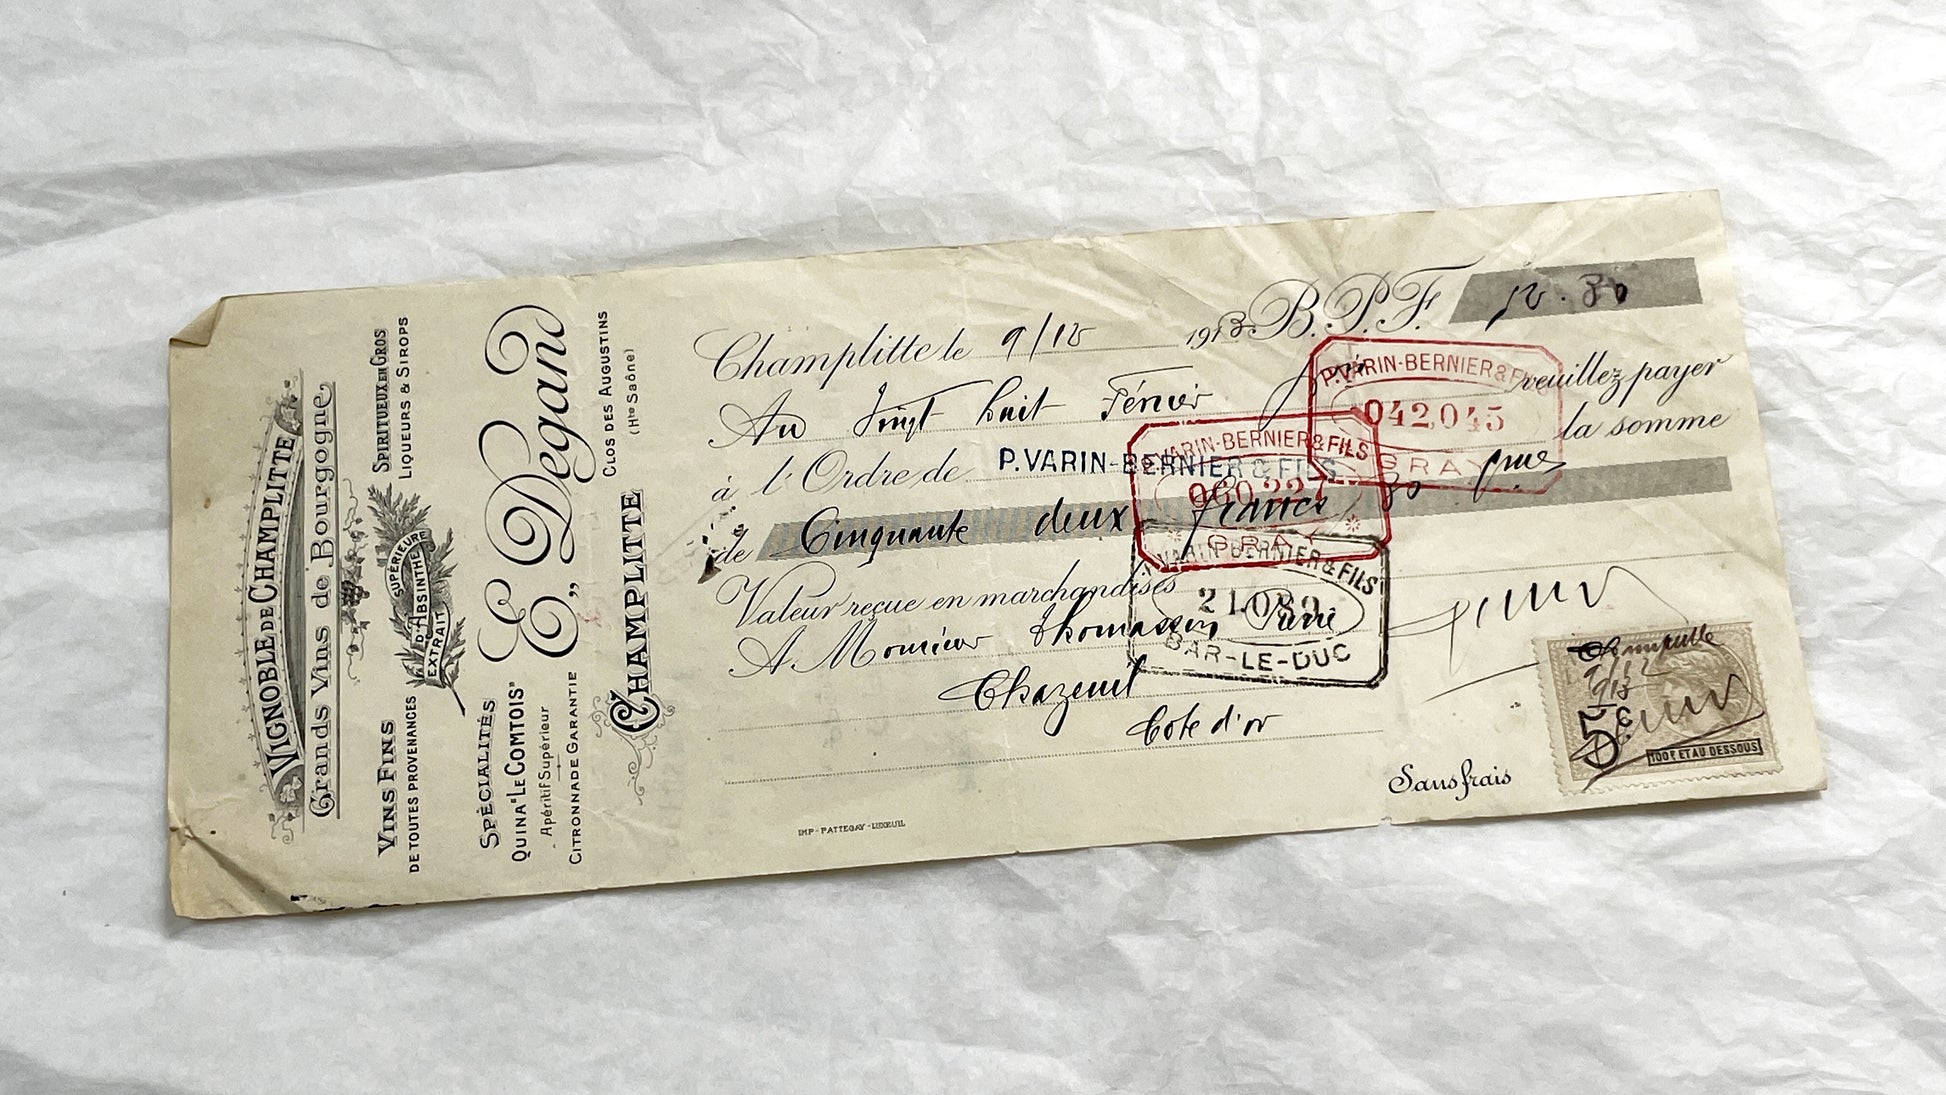 VIGNOBLE DE CHAMPLITTE
Grands Vins de Bourgogne
VINS FINS
DE TOUTES PROVENANCES
SPIRITUEUX EN GROS
LIQUEURS & SIROPS
EXTRAIT D'ABSINTHE SUPÉRIEURE
E. Degand
SPÉCIALITÉS
QUINA "LE COMTOIS"
- Apéritif Supérieur -
CITRONNADE GARANTIE
CLOS DES AUGUSTINS
CHAMPLITTE
(Hte Saône)
Champlitte le 9/12 1913 B.P.F. 52.80
Au Vingt huit Février veuillez payer
à l'Ordre de P. VARIN-BERNIER & FILS la somme
de Cinquante deux francs 80
Valeur reçue en marchandises
A Monsieur Thomassin Pierre
Chazeuil
Cote d'or
P. VARIN-BERNIER & FILS
042,045
GRAY
P. VARIN-BERNIER & FILS
060,227
GRAY
VARIN-BERNIER & FILS
21.089
BAR-LE-DUC
Sans frais
Champlitte
9/12
1913
5 c.
100 F. ET AU DESSOUS
IMP - PATTEGAY - LUXEUIL